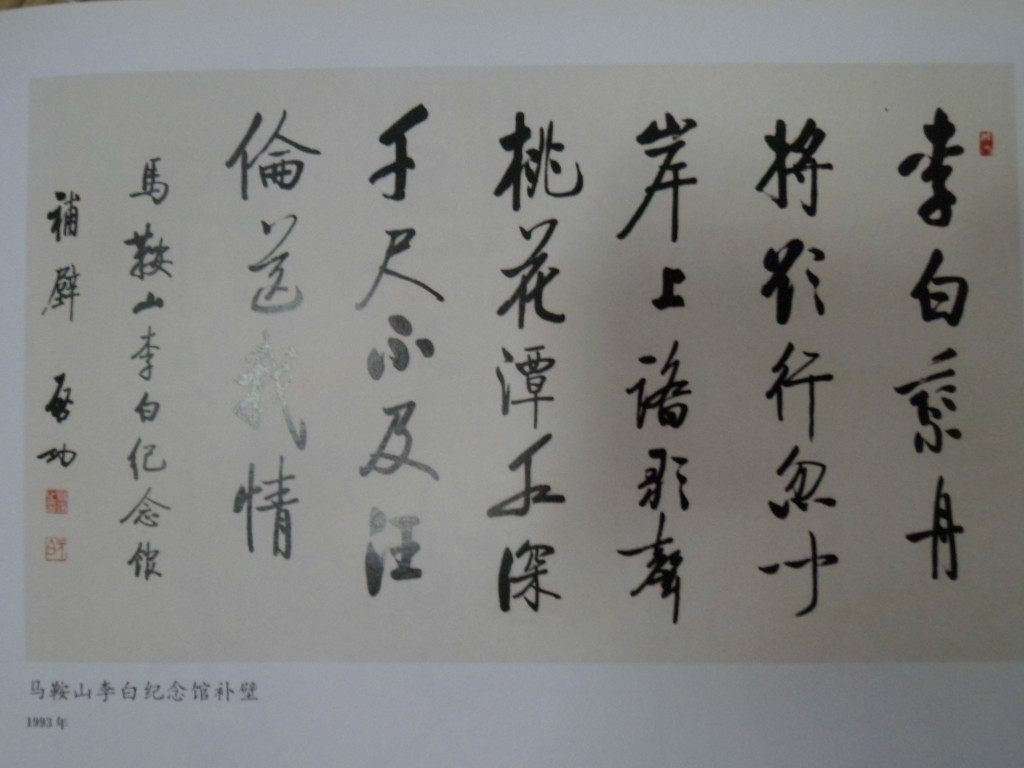 李白乘舟
將欲行忽聞
岸上踏歌聲
桃花潭水深
千尺不及汪
倫送我情
馬鞍山李白紀念館
補壁 啓功
马鞍山李白纪念馆补壁
1993年